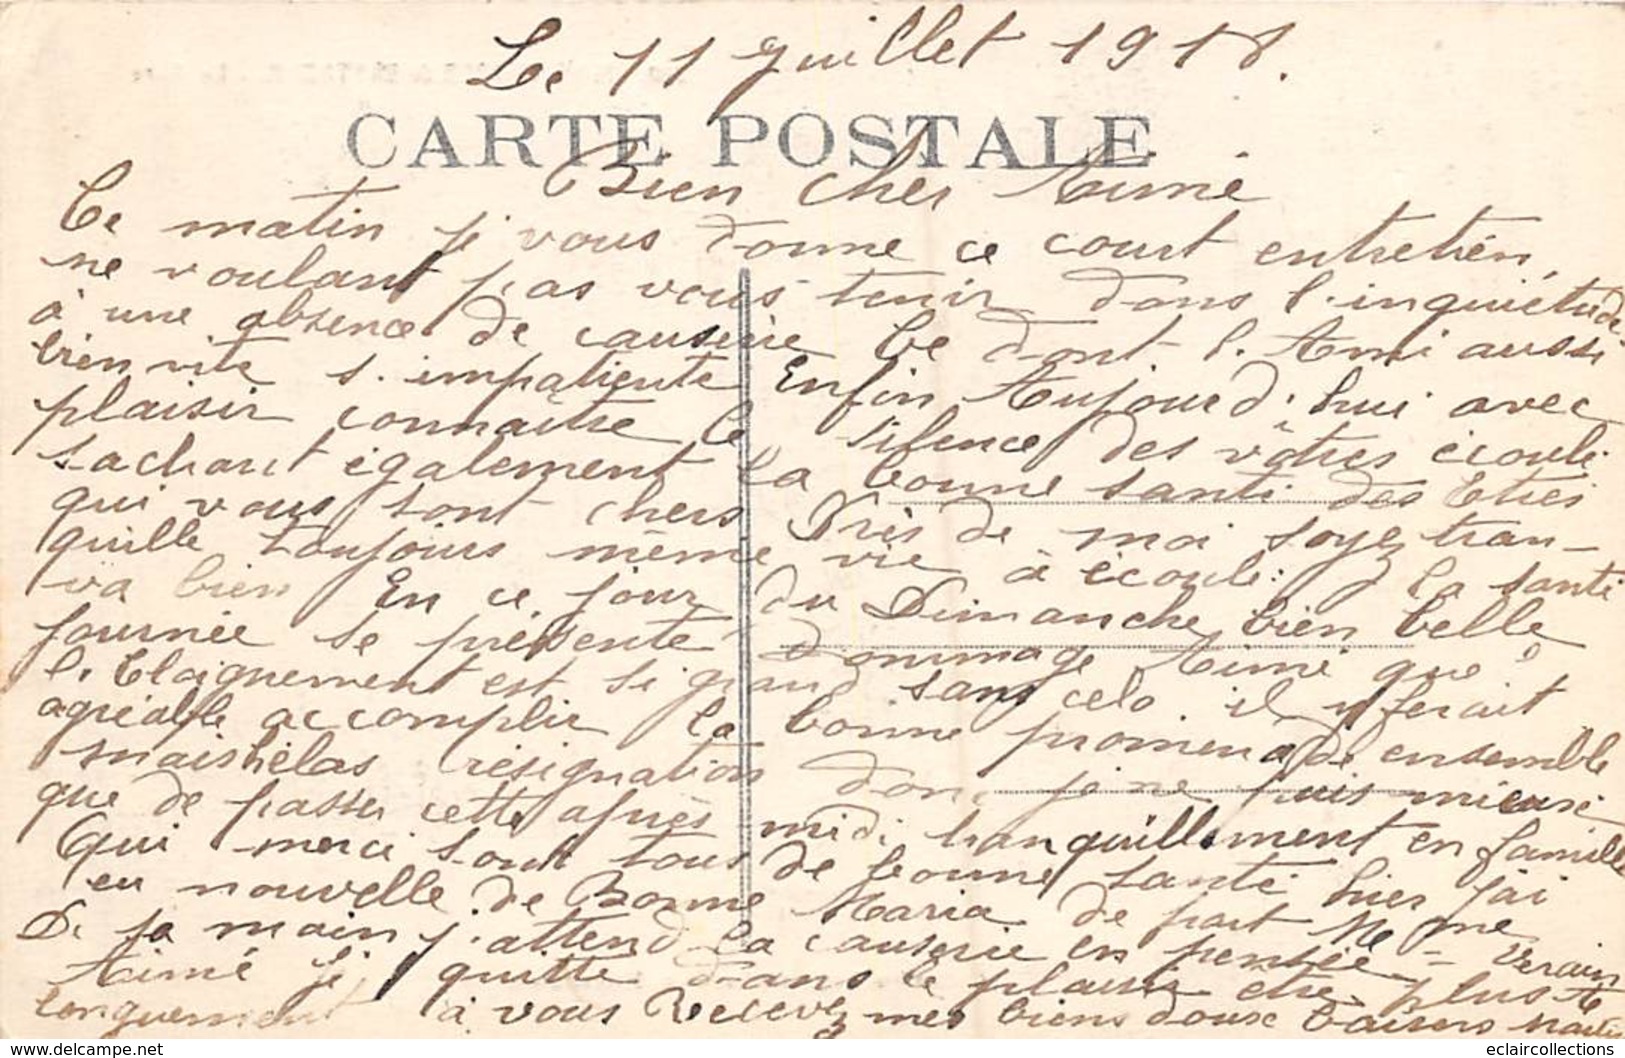 Le 11 juillet 1918.
CARTE POSTALE
Bien cher Aimé
Ce matin je vous donne ce court entretien,
ne voulant pas vous tenir dans l'inquiétude
à une absence de causerie Ce dont l'Ami aussi
bien vite s'impatiente Enfin Aujourd'hui avec
plaisir connaitre le silence des vôtres écoulé
sachant également la bonne santé des Etres
qui vous sont chers Près de moi soyez tran-
quille toujours même vie à écoulé: la santé
va bien En ce jour du Dimanche bien belle
journée se présente dommage Aimé que
l'Eloignement est si grand sans cela il y ferait
agréable accomplir la bonne promenade ensemble
mais hélas résignation donc je ne puis mieux
que de passer cette après-midi tranquillement en famille
Qui merci sont tous de bonne santé hier j'ai
eu nouvelle de Bonne Maria de part Me me Verain
De sa main j'attend la causerie en pensée
Aimé je quitte dans le plaisir être plus
longuement à vous Recevez mes biens doux baisers
eclaircollections
© www.delcampe.net